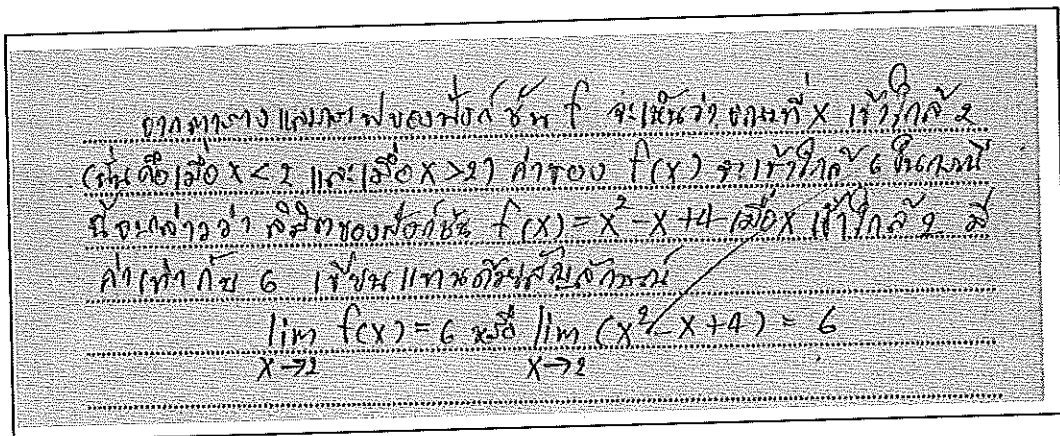 จากตารางและกราฟของฟังก์ชัน f จะเห็นว่า ขณะที่ x เข้าใกล้ 2
(นั่นคือเมื่อ x < 2 และเมื่อ x > 2) ค่าของ f(x) จะเข้าใกล้ 6 ในกรณี
นี้จะกล่าวว่า ลิมิตของฟังก์ชัน f(x) = x² - x + 4 เมื่อ x เข้าใกล้ 2 มี
ค่าเท่ากับ 6 เขียนแทนด้วยสัญลักษณ์
lim f(x) = 6 หรือ lim (x² - x + 4) = 6
x→2 x→2